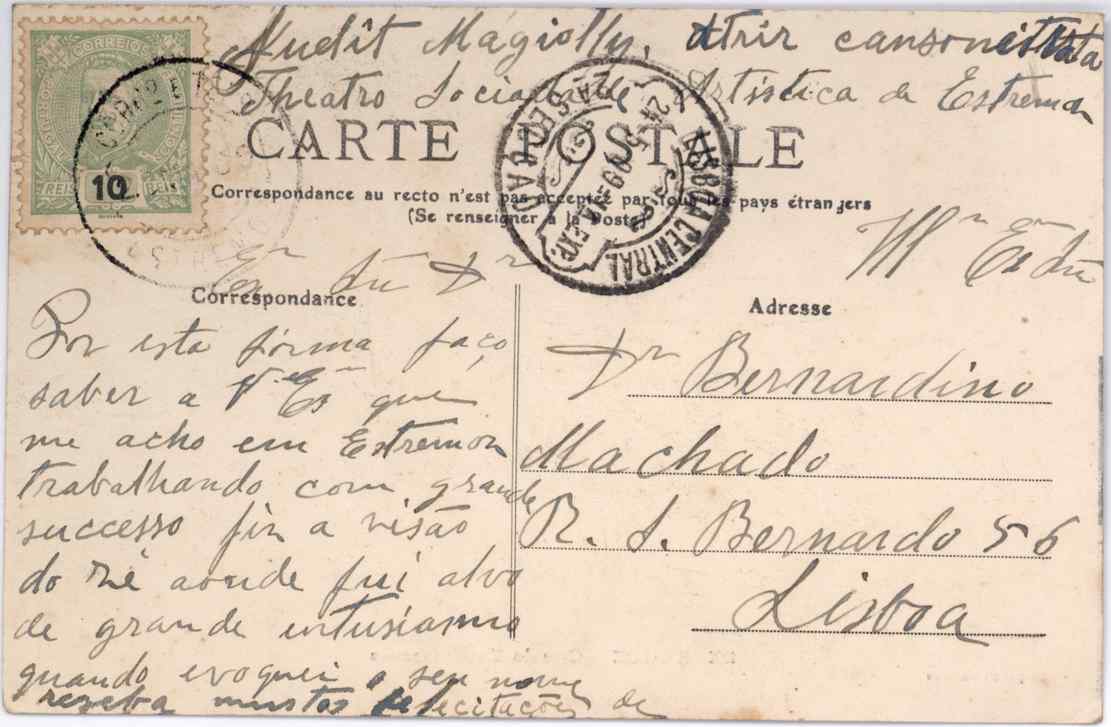 Nudit Magiolly, atrir cansonetista
Theatro Sociedade Artistica de Estremoz
CORREIOS
REIS 10 REIS
CARTE POSTALE
2A SECÇÃO
LISBOA CENTRAL
Correspondance au recto n'est pas acceptée par tous les pays étrangers
(Se renseigner à la Poste)
Exmo Snr Dr
Correspondance
Por esta forma faço
saber a V Exa que
me acho em Estremoz
trabalhando com grande
successo fiz a visão
do aonde fui alvo
de grande intusiasmo
quando evoquei o seu nome
rezeba muitas felecitações de
Adresse
Dr Bernardino
Machado
R. S. Bernardo 56
Lisboa